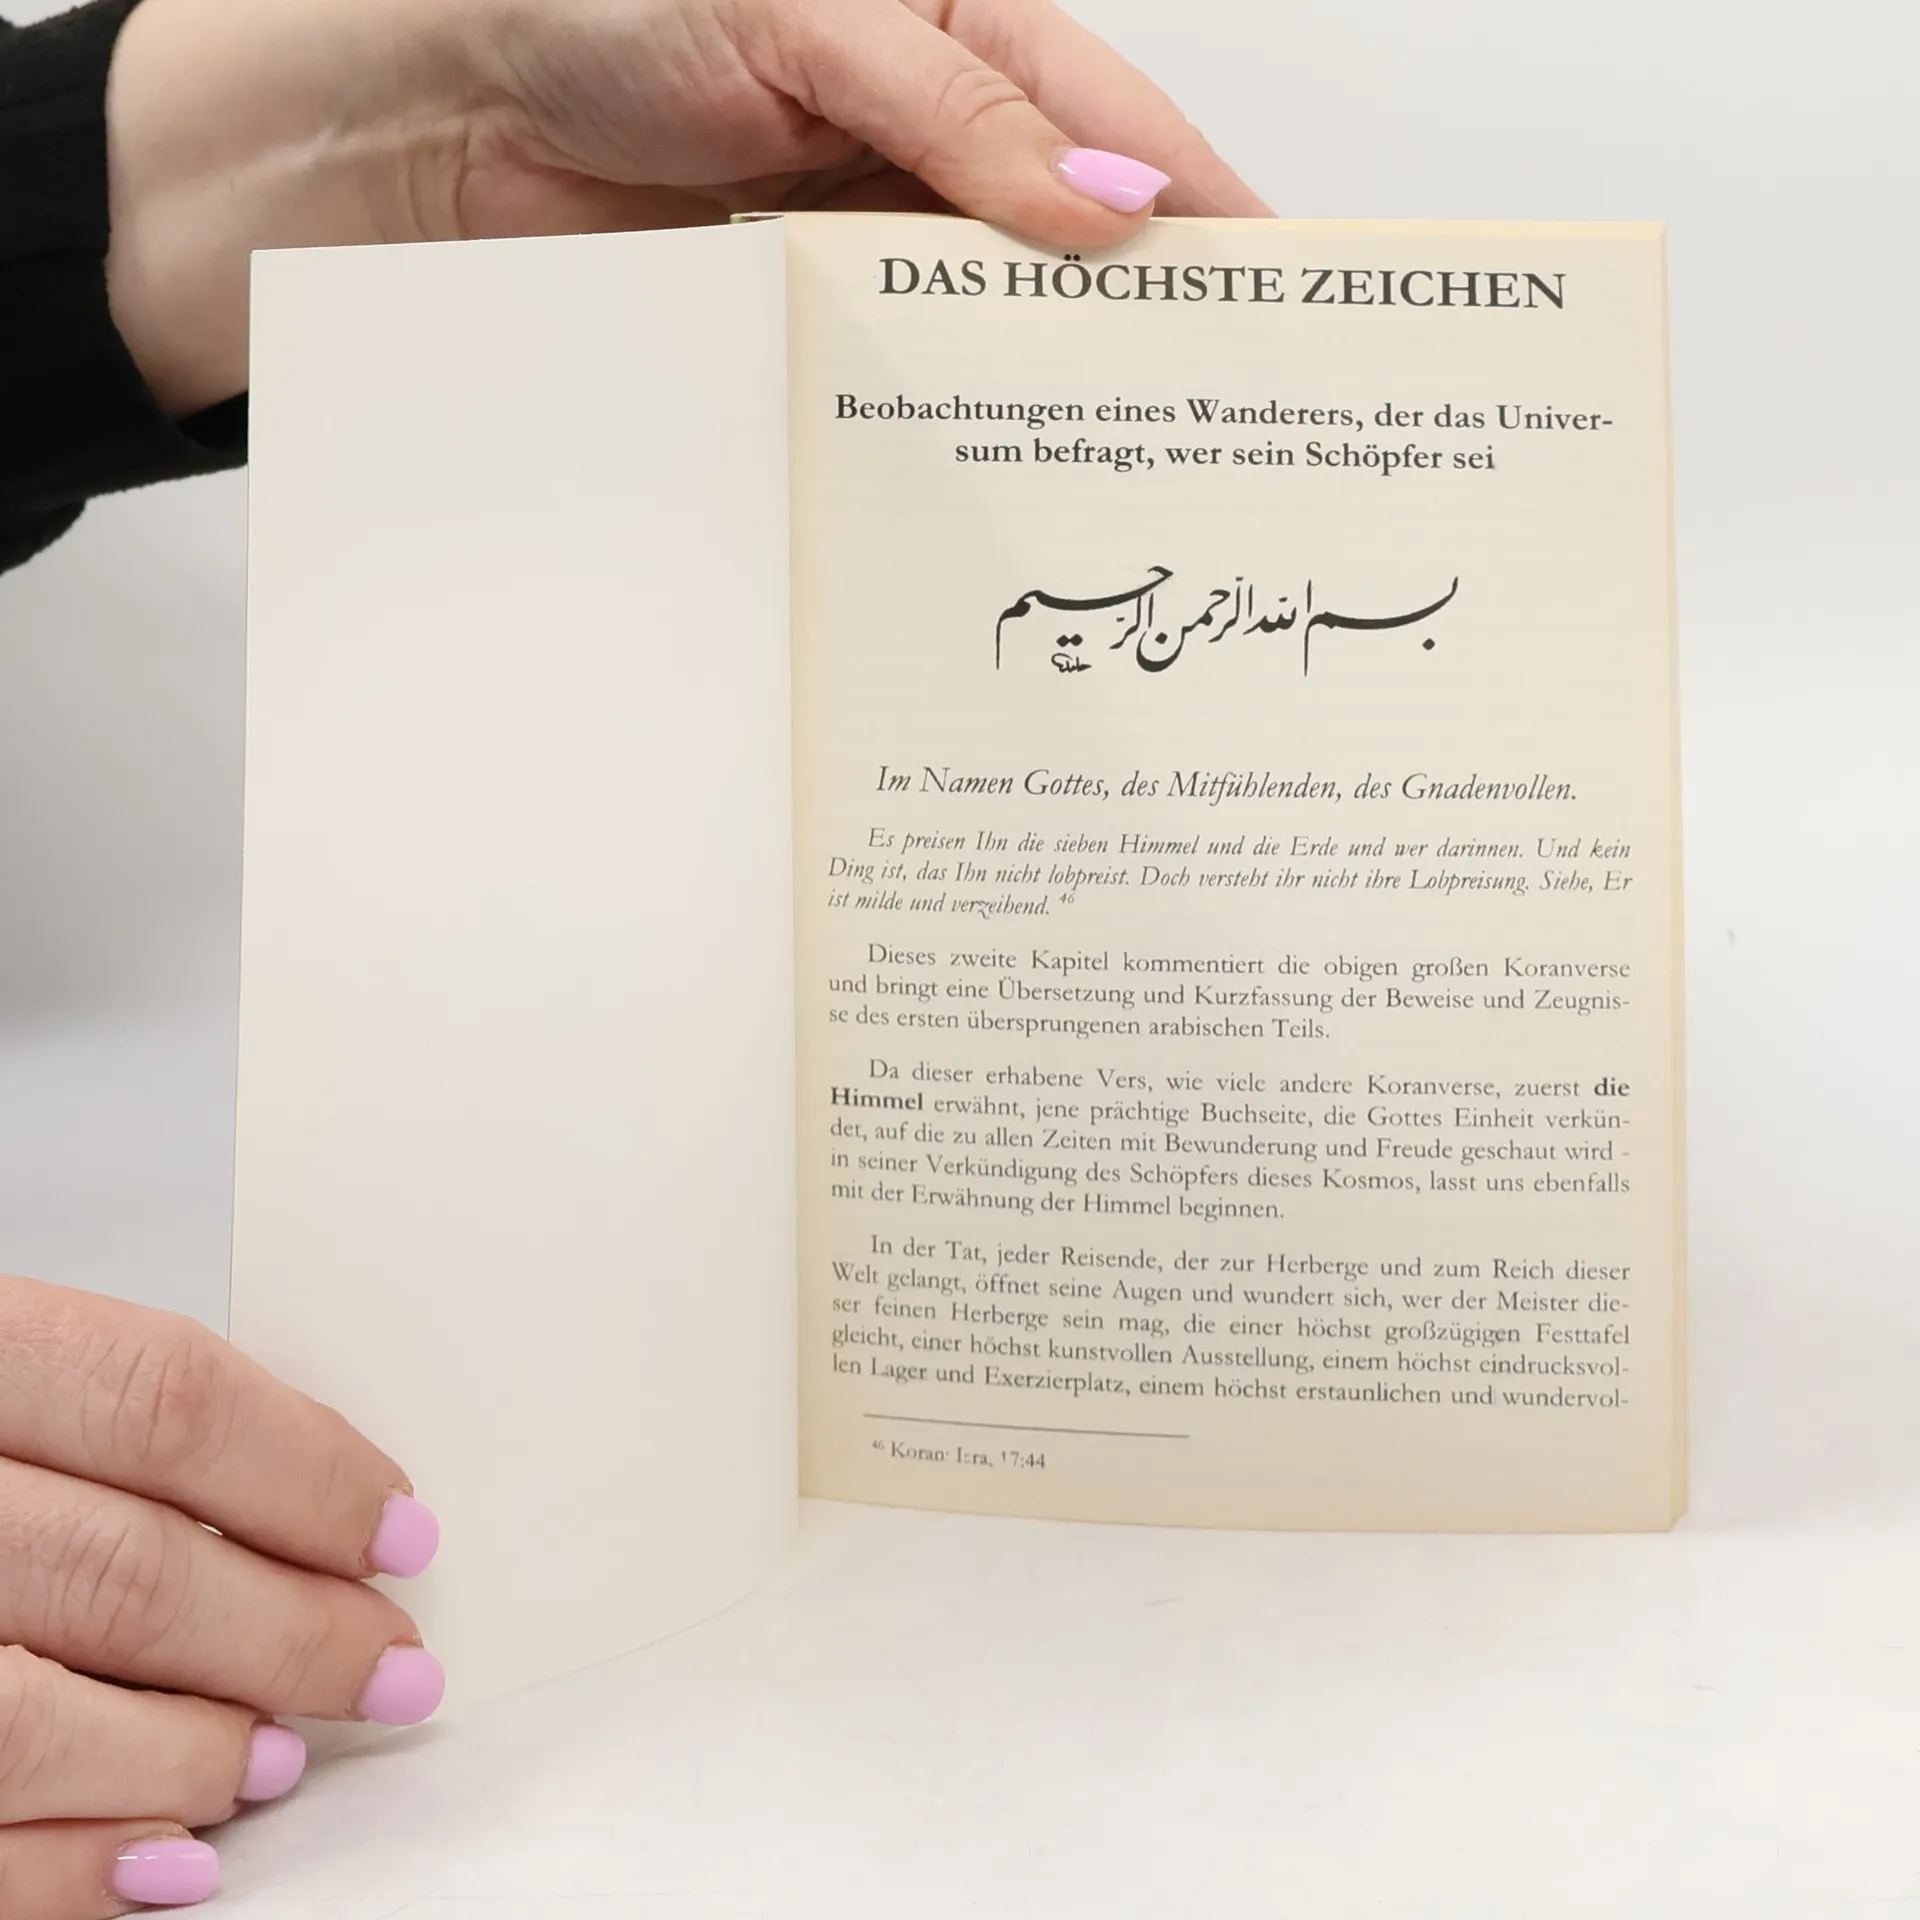 DAS HÖCHSTE ZEICHEN
Beobachtungen eines Wanderers, der das Univer-
sum befragt, wer sein Schöpfer sei
بسم الله الرحمن الرحيم
Im Namen Gottes, des Mitfühlenden, des Gnadenvollen.
Es preisen Ihn die sieben Himmel und die Erde und wer darinnen. Und kein
Ding ist, das Ihn nicht lobpreist. Doch versteht ihr nicht ihre Lobpreisung. Siehe, Er
ist milde und verzeihend. 46
Dieses zweite Kapitel kommentiert die obigen großen Koranverse
und bringt eine Übersetzung und Kurzfassung der Beweise und Zeugnis-
se des ersten übersprungenen arabischen Teils.
Da dieser erhabene Vers, wie viele andere Koranverse, zuerst die
Himmel erwähnt, jene prächtige Buchseite, die Gottes Einheit verkün-
det, auf die zu allen Zeiten mit Bewunderung und Freude geschaut wird -
in seiner Verkündigung des Schöpfers dieses Kosmos, lasst uns ebenfalls
mit der Erwähnung der Himmel beginnen.
In der Tat, jeder Reisende, der zur Herberge und zum Reich dieser
Welt gelangt, öffnet seine Augen und wundert sich, wer der Meister die-
ser feinen Herberge sein mag, die einer höchst großzügigen Festtafel
gleicht, einer höchst kunstvollen Ausstellung, einem höchst eindrucksvol-
len Lager und Exerzierplatz, einem höchst erstaunlichen und wundervol-
46 Koran: Isra, 17:44